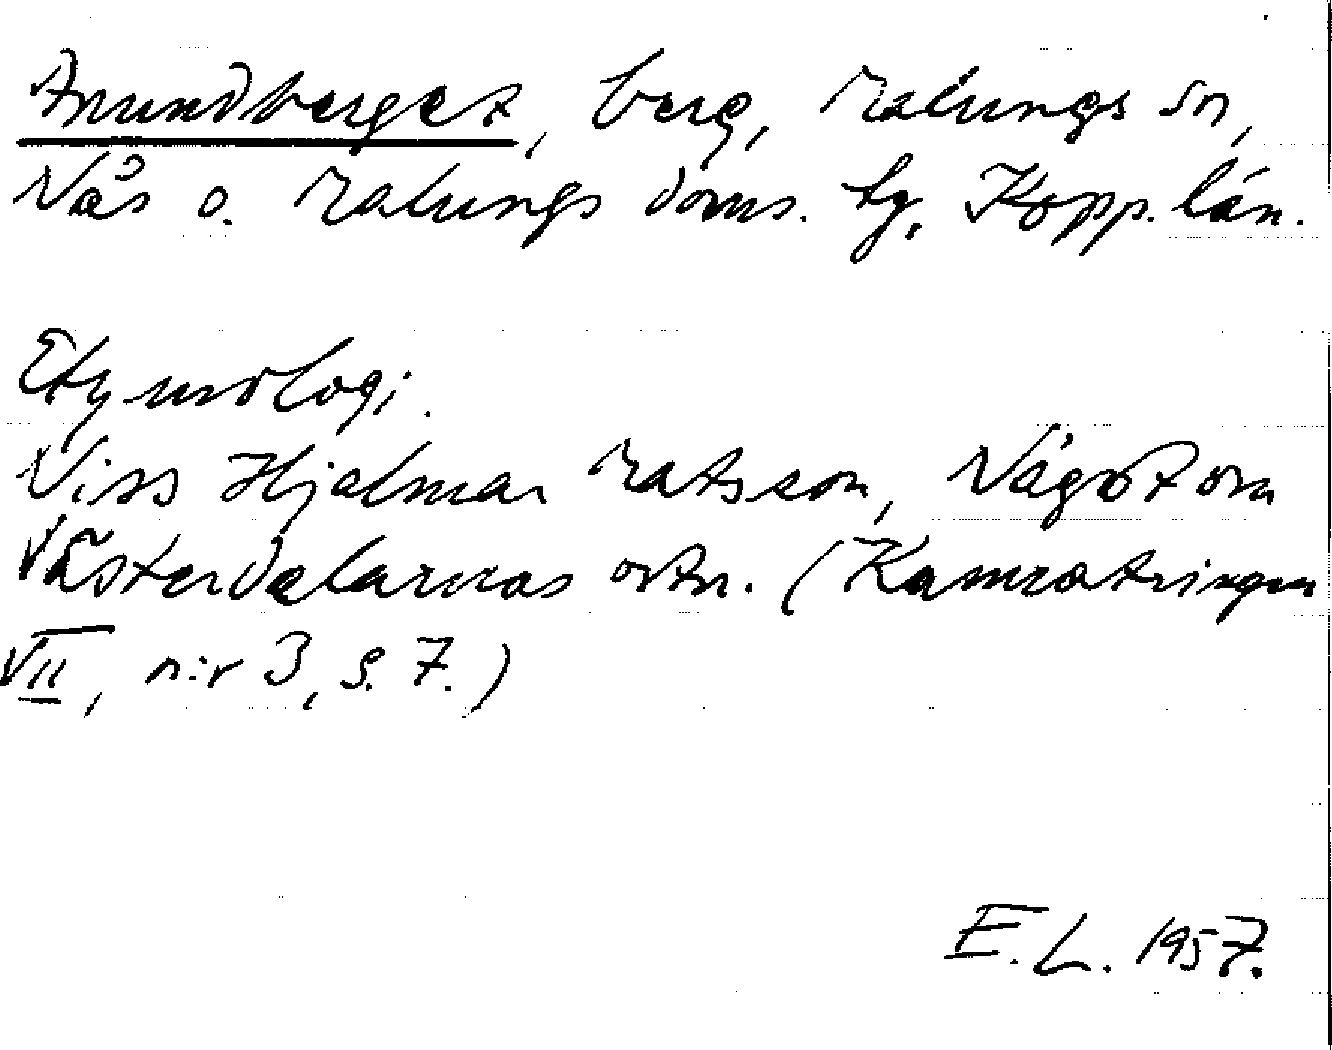 Anundberget, berg, Malungs sn,
Nås o. Malungs doms. tg, Kopp. län.
Etymologi.
Viss Hjalmar Matsson, Något om
Västerdalarnas ortn. (Kamratringen
VII, n:r 3, s. 7.)
E.L. 1957.